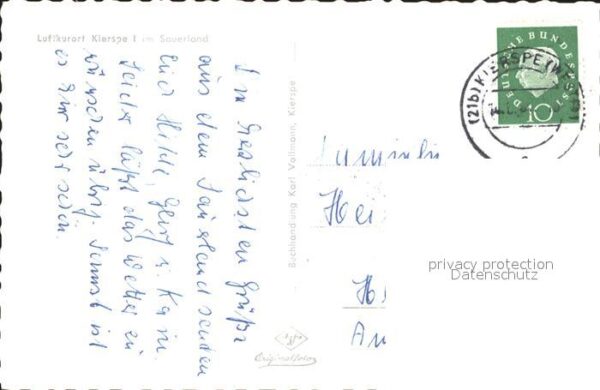 Luftkurort Kierspe I im Sauerland
Grüße
aus dem Sauerland senden
Euch Hilde, u. Karin
Leider läßt das Wetter zu
wünschen übrig. Sonst ist
es hier sehr schön.
Buchhandlung Karl Vollmann, Kierspe
Agfa
Familie
Hei
H
An
DEUTSCHE BUNDESPOST
10
(21b) KIERSPE (WESTF)
privacy protection
Datenschutz